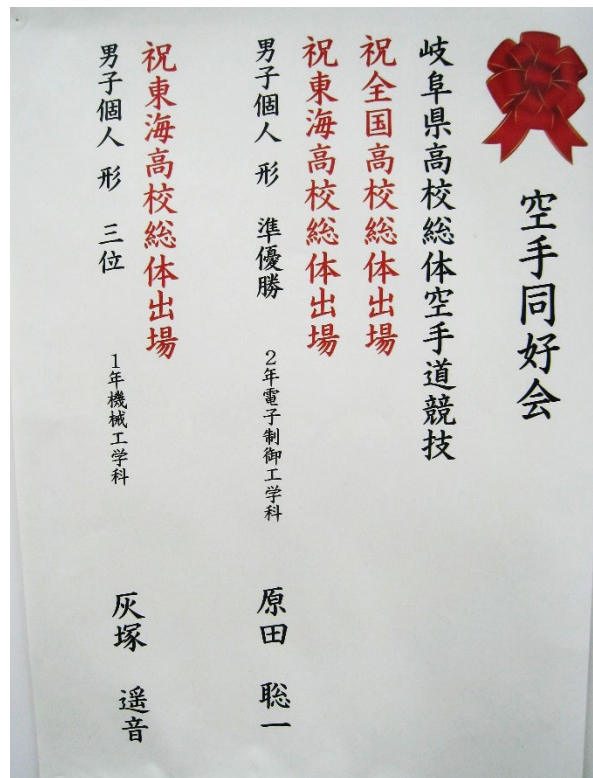 空手同好会
岐阜県高校総体空手道競技
祝全国高校総体出場
祝東海高校総体出場
男子個人 形 準優勝 2年電子制御工学科 原田 聡一
祝東海高校総体出場
男子個人 形 三位 1年機械工学科 灰塚 遥音